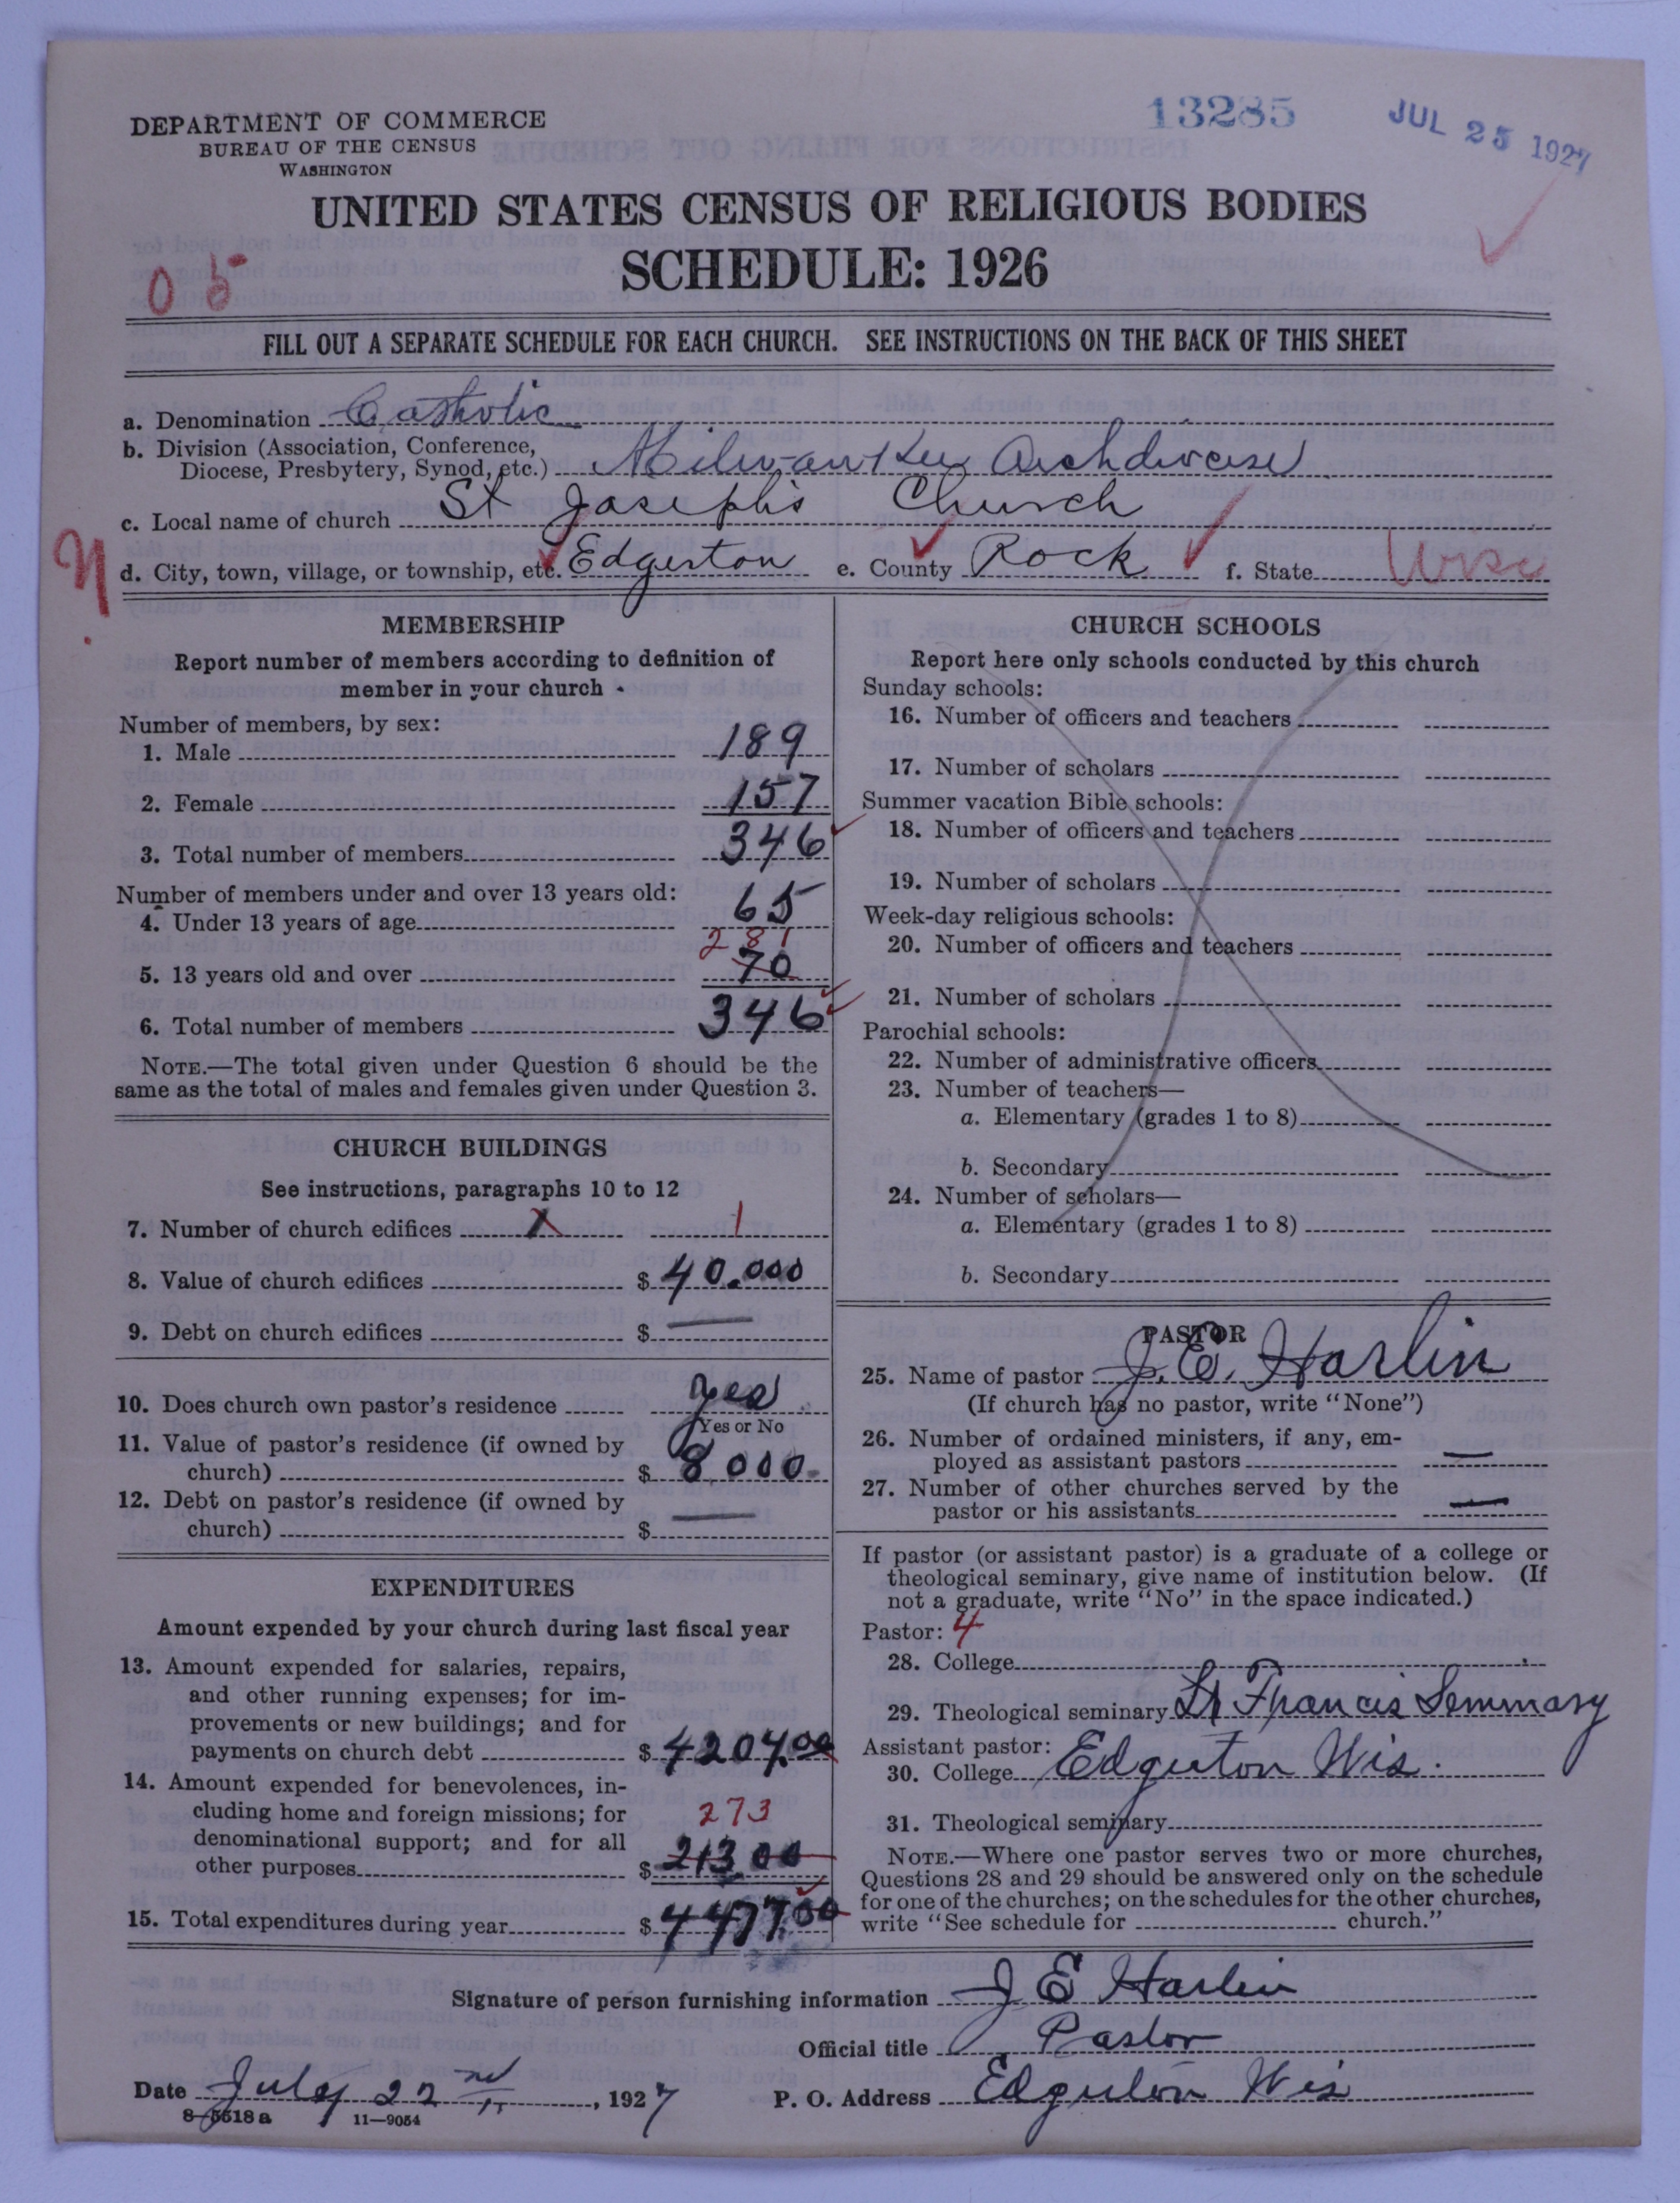 13285
JUL 25 1927
DEPARTMENT OF COMMERCE
BUREAU OF THE CENSUS
WASHINGTON
UNITED STATES CENSUS OF RELIGIOUS BODIES
SCHEDULE: 1926
0 5
FILL OUT A SEPARATE SCHEDULE FOR EACH CHURCH. SEE INSTRUCTIONS ON THE BACK OF THIS SHEET
a. Denomination Catholic
b. Division (Association, Conference,
Diocese, Presbytery, Synod, etc.) Milwaukee Archdiocese
c. Local name of church St Joseph's Church
d. City, town, village, or township, etc. Edgerton e. County Rock f. State Wisc
MEMBERSHIP
Report number of members according to definition of
member in your church
Number of members, by sex:
1. Male 189
2. Female 157
3. Total number of members 346
Number of members under and over 13 years old:
4. Under 13 years of age 65
281
5. 13 years old and over 70
6. Total number of members 346
NOTE.—The total given under Question 6 should be the
same as the total of males and females given under Question 3.
CHURCH BUILDINGS
See instructions, paragraphs 10 to 12
7. Number of church edifices 1
8. Value of church edifices $ 40.000
9. Debt on church edifices $ —
10. Does church own pastor's residence yes
Yes or No
11. Value of pastor's residence (if owned by
church) $ 8000
12. Debt on pastor's residence (if owned by
church) $ —
EXPENDITURES
Amount expended by your church during last fiscal year
13. Amount expended for salaries, repairs,
and other running expenses; for im-
provements or new buildings; and for
payments on church debt $ 4204.00
14. Amount expended for benevolences, in-
cluding home and foreign missions; for
273
denominational support; and for all
other purposes $ 213 00
15. Total expenditures during year $ 4477.00
CHURCH SCHOOLS
Report here only schools conducted by this church
Sunday schools:
16. Number of officers and teachers
17. Number of scholars
Summer vacation Bible schools:
18. Number of officers and teachers
19. Number of scholars
Week-day religious schools:
20. Number of officers and teachers
21. Number of scholars
Parochial schools:
22. Number of administrative officers
23. Number of teachers—
a. Elementary (grades 1 to 8)
b. Secondary
24. Number of scholars—
a. Elementary (grades 1 to 8)
b. Secondary
PASTOR
25. Name of pastor J. E. Harlin
(If church has no pastor, write "None")
26. Number of ordained ministers, if any, em-
ployed as assistant pastors —
27. Number of other churches served by the
pastor or his assistants —
If pastor (or assistant pastor) is a graduate of a college or
theological seminary, give name of institution below. (If
not a graduate, write "No" in the space indicated.)
Pastor: 4
28. College
29. Theological seminary St Francis Seminary
Assistant pastor:
30. College Edgerton Wis.
31. Theological seminary
NOTE.—Where one pastor serves two or more churches,
Questions 28 and 29 should be answered only on the schedule
for one of the churches; on the schedules for the other churches,
write "See schedule for church."
Signature of person furnishing information J E Harlin
Official title Pastor
Date July 22nd, 1927 P. O. Address Edgerton Wis
8-5518a 11-9054